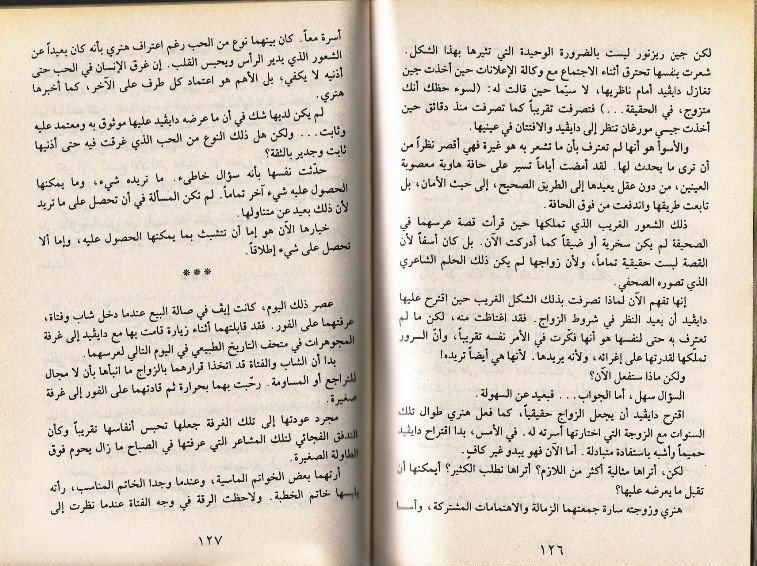 لكن جين ريزنور ليست بالضرورة الوحيدة التي تثيرها بهذا الشكل.
شعرت بنفسها تحترق أثناء الاجتماع مع وكالة الإعلانات حين أخذت جين
تغازل دايڤيد أمام ناظريها، لا سيّما حين قالت له: (لسوء حظك أنك
متزوج، في الحقيقة...) فتصرفت تقريباً كما تصرفت منذ دقائق حين
أخذت جيسي مورغان تنظر إلى دايڤيد والافتتان في عينيها.
والأسوأ هو أنها لم تعترف بأن ما تشعر به هو غيرة فهي أقصر نظراً من
أن ترى ما يحدث لها. لقد أمضت أياماً تسير على حافة هاوية معصوبة
العينين، من دون عقل يعيدها إلى الطريق الصحيح، إلى حيث الأمان، بل
تابعت طريقها واندفعت من فوق الحافة.
ذلك الشعور الغريب الذي تملكها حين قرأت قصة عرسهما في
الصحيفة لم يكن سخرية أو ضيقاً كما أدركت الآن. بل كان أسفاً لأن
القصة ليست حقيقية تماماً، ولأن زواجها لم يكن ذلك الحلم الشاعري
الذي تصوره الصحفي.
إنها تفهم الآن لماذا تصرفت بذلك الشكل الغريب حين اقترح عليها
دايڤيد أن يعيد النظر في شروط الزواج. فقد اغتاظت منه، لكن ما لم
تعترف به حتى لنفسها هو أنها فكّرت في الأمر نفسه تقريباً، وأنّ السرور
تملّكها لقدرتها على إغرائه، ولأنه يريدها. لأنها هي أيضاً تريده!
ولكن ماذا ستفعل الآن؟
السؤال سهل، أما الجواب... فبعيد عن السهولة.
اقترح دايڤيد أن يجعل الزواج حقيقياً، كما فعل هنري طوال تلك
السنوات مع الزوجة التي اختارتها أسرته له. في الأمس، بدا اقتراح دايڤيد
حميماً وأشبه باستفادة متبادلة. أما الآن فهو يبدو غير كافٍ.
لكن، أتراها مثالية أكثر من اللازم؟ أتراها تطلب الكثير؟ أيمكنها أن
تقبل ما يعرضه عليها؟
هنري وزوجته سارة جمعتهما الزمالة والاهتمامات المشتركة، وأسسا
١٢٦
أسرة معاً. كان بينهما نوع من الحب رغم اعتراف هنري بأنه كان بعيداً عن
الشعور الذي يدير الرأس ويحبس القلب. إن غرق الإنسان في الحب حتى
أذنيه لا يكفي، بل الأهم هو اعتماد كل طرف على الآخر، كما أخبرها
هنري.
لم يكن لديها شك في أن ما عرضه دايڤيد عليها موثوق به ومعتمد عليه
وثابت... ولكن هل ذلك النوع من الحب الذي غرقت فيه حتى أذنيها
ثابت وجدير بالثقة؟
حدّثت نفسها بأنه سؤال خاطىء. ما تريده شيء، وما يمكنها
الحصول عليه شيء آخر تماماً. لم تكن المسألة في أن تحصل على ما تريد
لأن ذلك بعيد عن متناولها.
خيارها الآن هو إما أن تتشبث بما يمكنها الحصول عليه، وإما ألا
تحصل على شيء إطلاقاً.
***
عصر ذلك اليوم، كانت إيڤ في صالة البيع عندما دخل شاب وفتاة،
عرفتهما على الفور. فقد قابلتهما أثناء زيارة قامت بها مع دايڤيد إلى غرفة
المجوهرات في متحف التاريخ الطبيعي في اليوم التالي لعرسهما.
بدا أن الشاب والفتاة قد اتخذا قرارهما بالزواج ما انبأها بأن لا مجال
للتراجع أو المساومة. رحّبت بهما بحرارة ثم قادتهما على الفور إلى غرفة
صغيرة.
مجرد عودتها إلى تلك الغرفة جعلها تحبس أنفاسها تقريباً وكأن
التدفق الفجائي لتلك المشاعر التي عرفتها في الصباح ما زال يحوم فوق
الطاولة الصغيرة.
أرتهما بعض الخواتم الماسية، وعندما وجدا الخاتم المناسب، رأته
يلبسها خاتم الخطبة. ولاحظت الرقة في وجه الفتاة عندما نظرت إلى
١٢٧